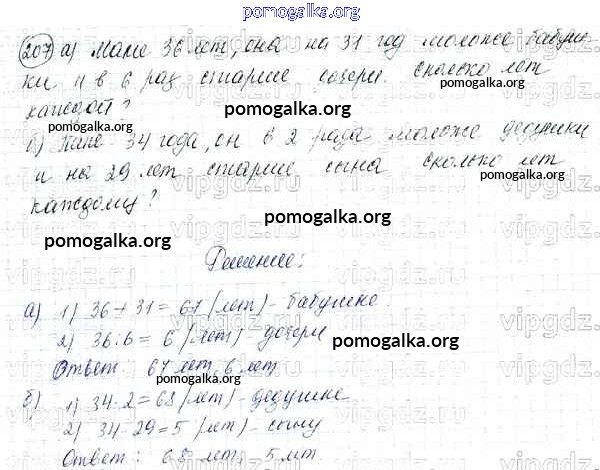 pomogalka.org
207) а) Маме 36 лет, она на 31 год моложе бабуш-
ки и в 6 раз старше дочери. Сколько лет
каждой?
pomogalka.org pomogalka.org
б) Папе 34 года, он в 2 раза моложе дедушки
и на 29 лет старше сына. Сколько лет
pomogalka.org
каждому?
pomogalka.org
pomogalka.org
Решение:
а) 1) 36 + 31 = 67 (лет) - бабушке
2) 36:6 = 6 (лет) - дочери
pomogalka.org
Ответ: 67 лет, 6 лет.
pomogalka.org
б) 1) 34·2=68 (лет) - дедушке
2) 34-29=5 (лет) - сыну
pomogalka.org
Ответ: 68 лет, 5 лет.
vipgdz.ru